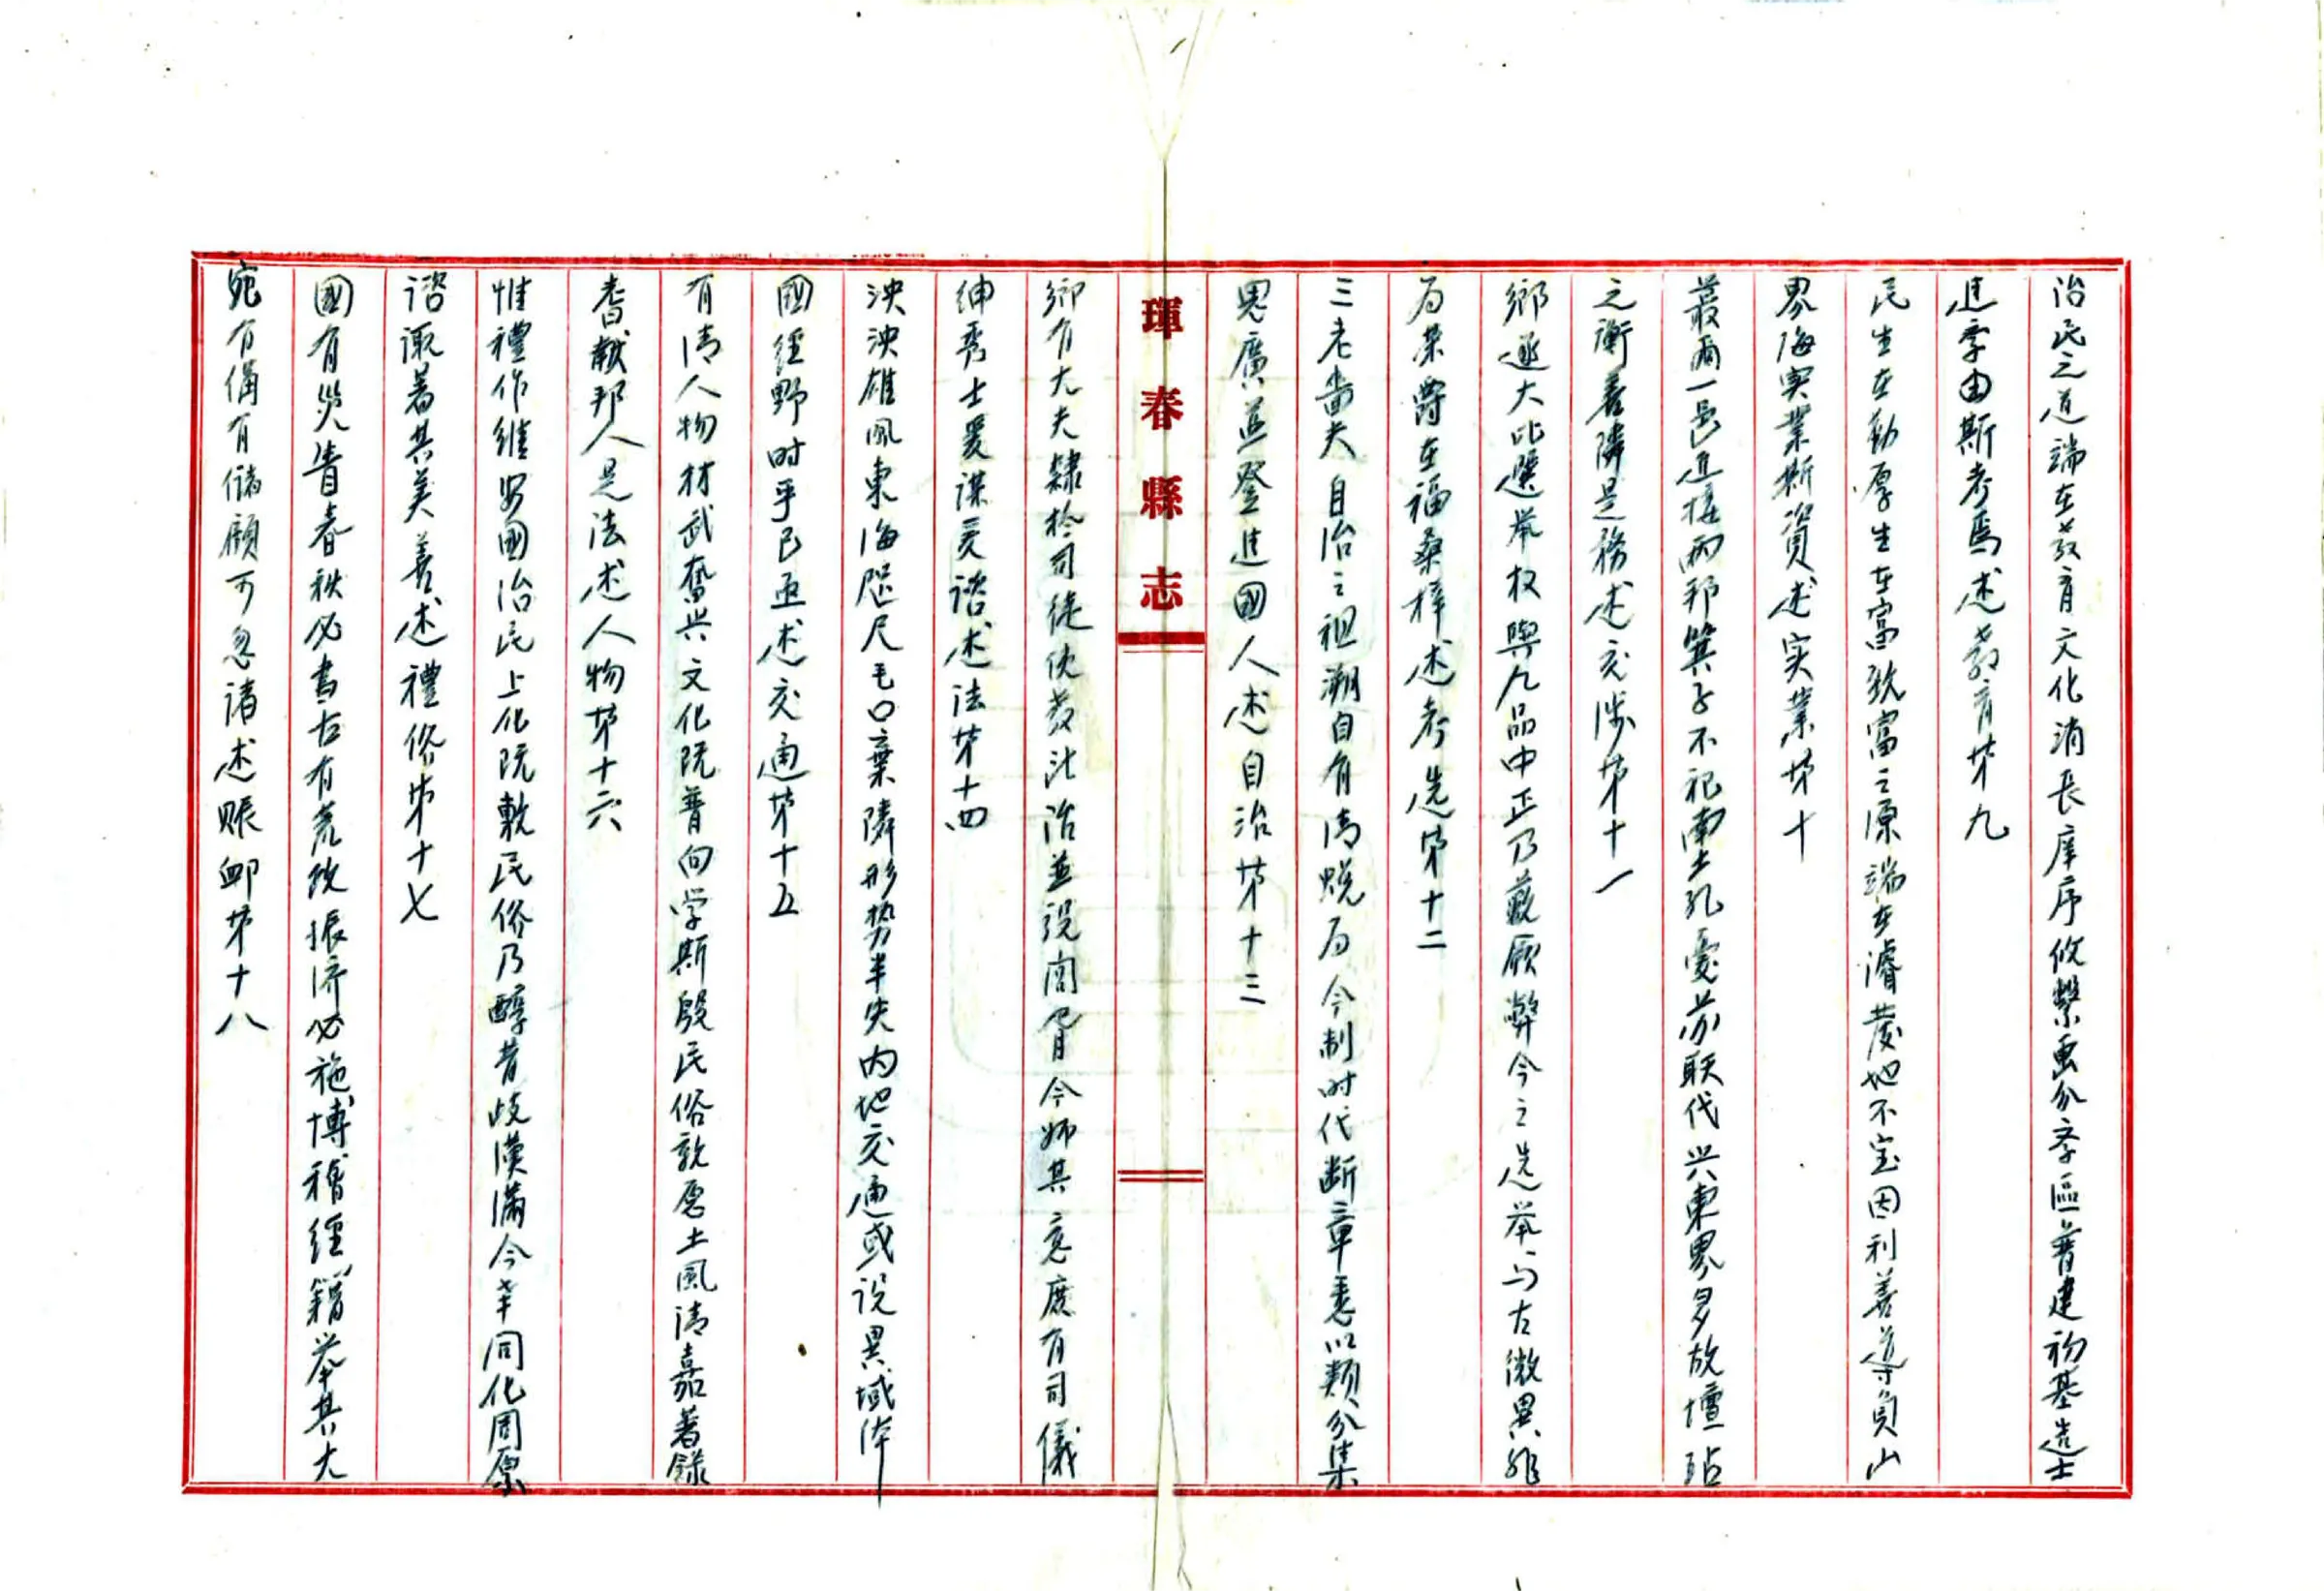 治民之道端在教育文化消長庠序攸繫画分学區普建初基造士
進学由斯考焉述教育第九
民生在勤厚生在富致富之源端在濬發地不宝因利善導負山
界海实業斯資述实業第十
蕞爾一邑近接两邦箕子不祀南土孔憂苏联代兴東界多故壇坫
之衝善隣是務述交涉第十一
鄉遂大比選举权輿九品中正乃蔽厥弊今之选举与古微異非
为荣爵在福桑梓述考选第十二
三老嗇夫自治之祖溯自有清蜕为今制时代断章悉以類分集
思廣益登進國人述自治第十三
琿春縣志
鄉有大夫隸於司徒使教汏治並設閭胥今师其意庶有司儀
紳秀士爰谋爰諮述法第十四
泱泱雄風東海咫尺毛口棄隣形势半失内地交通或设異域体
國经野时乎已亟述交通第十五
有清人物材武奮兴文化既普向学斯殷民俗敦愿土風清嘉著録
耆献邦人是法述人物第十六
惟禮作維安國治民上化既敷民俗乃醇昔歧漢满今幸同化周原
諮諏著其美善述禮俗第十七
國有災眚春秋必書古有荒政振济必施博稽经籍举其大
宛有備有储顾可忽诸述赈卹第十八